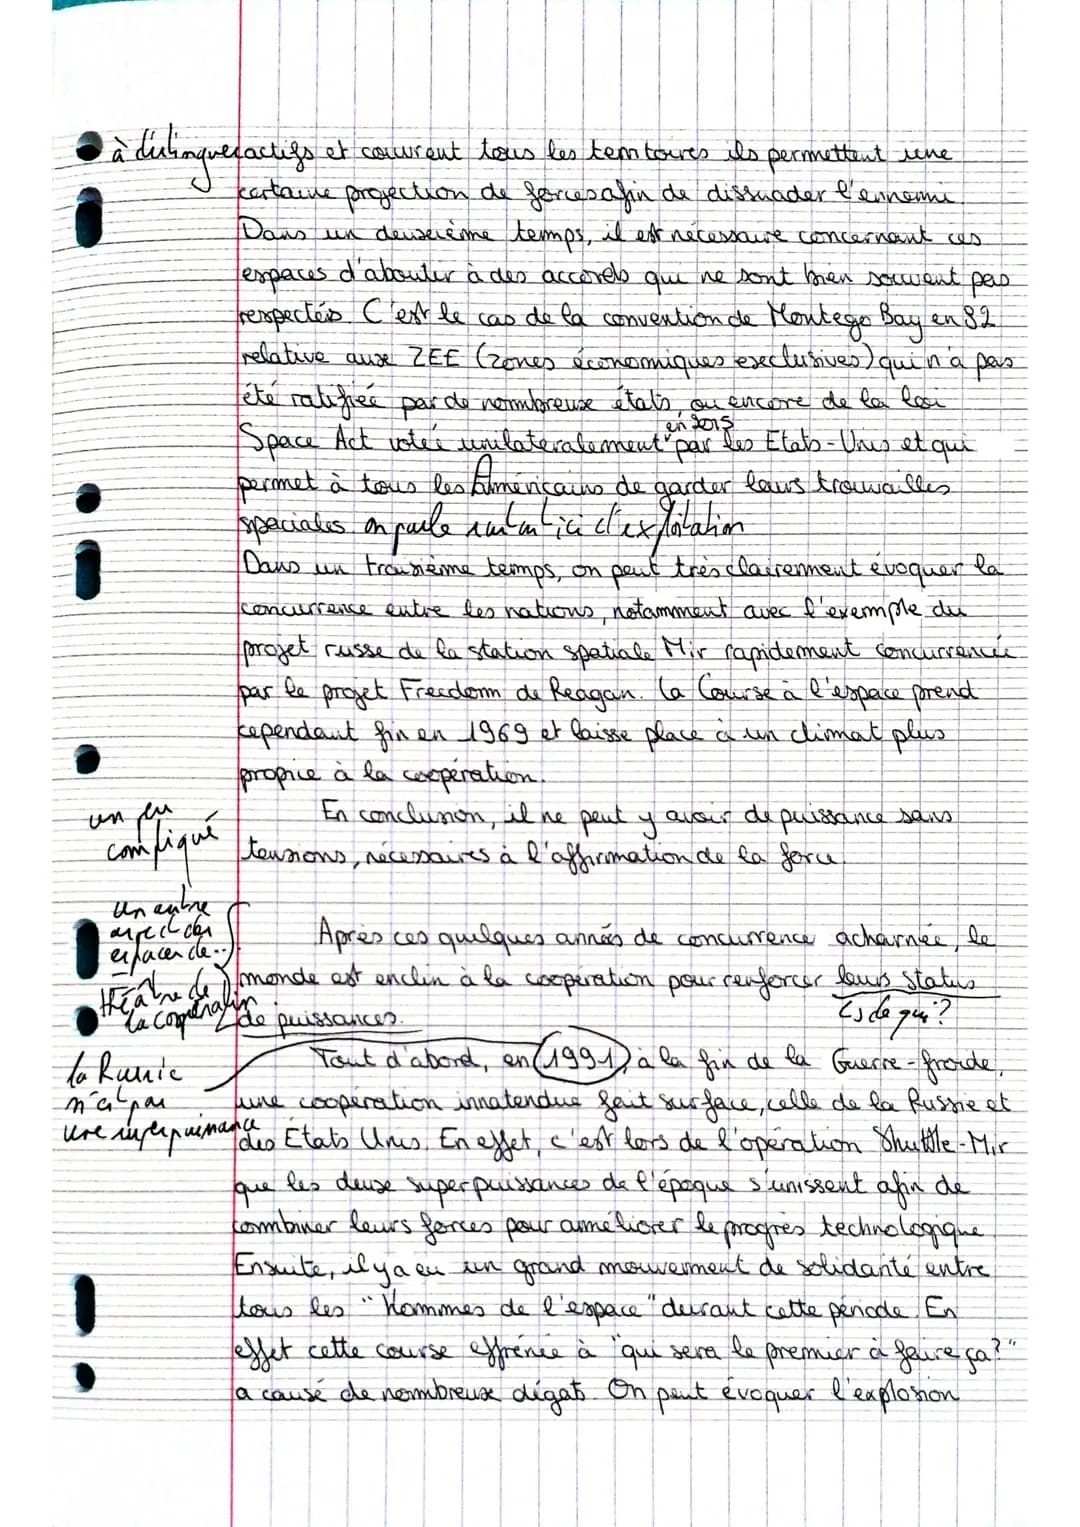 à distinguer actifs et couvrent tous les territoires ils permettent une
certaine projection de forces afin de dissuader l'ennemi.
Dans un deuxième temps, il est nécessaire concernant ces
espaces d'aboutir à des accords qui ne sont bien souvent pas
respectés. C'est le cas de la convention de Montego Bay en 82
relative aux ZEE (zones économiques exclusives) qui n'a pas
été ratifiée par de nombreux états, ou encore de la loi
en 2015
Space Act votée unilatéralement par les Etats-Unis et qui
permet à tous les Américains de garder leurs trouvailles
spaciales. on parle ici d'exploitation
Dans un troisième temps, on peut très clairement évoquer la
concurrence entre les nations, notamment avec l'exemple du
projet russe de la station spatiale Mir rapidement concurrencée
par le projet Freedom de Reagan. La Course à l'espace prend
cependant fin en 1969 et laisse place à un climat plus
propice à la coopération.
un peu
compliqué
En conclusion, il ne peut y avoir de puissance sans
tensions, nécessaires à l'affirmation de la force.
Un autre
aspect des
espaces de..
théâtre de
la coopération
Après ces quelques années de concurrence acharnée, le
monde est enclin à la coopération pour renforcer leurs status
de puissances.
↳ de qui ?
la Russie
n'est pas
une superpuissance
Tout d'abord, en 1991, à la fin de la Guerre-froide,
une coopération innatendue fait surface, celle de la Russie et
des États Unis. En effet, c'est lors de l'opération Shuttle-Mir
que les deux superpuissances de l'époque s'unissent afin de
combiner leurs forces pour améliorer le progrès technologique.
Ensuite, il y a eu un grand mouvement de solidarité entre
tous les "Hommes de l'espace" durant cette période. En
effet cette course effrénée à "qui sera le premier à faire ça?"
a causé de nombreux dégats. On peut évoquer l'explosion